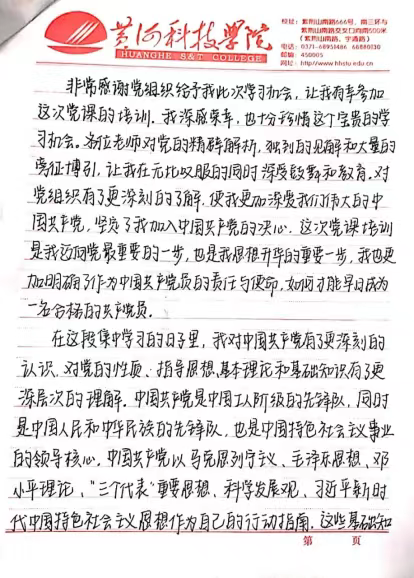 黄河科技学院
HUANGHE S&T COLLEGE
校址：紫荆山南路666号，南三环与
紫荆山南路交叉口向南500米
（紫荆山南路、宇通路）
电话：0371-68951486 66880130
邮编：450005
网址：http://www.hhstu.edu.cn
非常感谢党组织给予我此次学习机会，让我有幸参加
这次党课的培训。我深感荣幸，也十分珍惜这个宝贵的学
习机会。各位老师对党的精辟解析，独到的见解和大量的
旁征博引，让我在无比叹服的同时深受鼓舞和教育。对
党组织有了更深刻的了解，使我更加深爱我们伟大的中
国共产党，坚定了我加入中国共产党的决心。这次党课培训
是我迈向党最重要的一步，也是我思想升华的重要一步，我也更
加明确了作为中国共产党员的责任与使命，如何才能早日成为
一名合格的共产党员。
在这段集中学习的日子里，我对中国共产党有了更深刻的
认识，对党的性质、指导思想、基本理论和基础知识有了更
深层次的理解。中国共产党是中国工人阶级的先锋队，同时
是中国人民和中华民族的先锋队，也是中国特色社会主义事业
的领导核心，中国共产党以马克思列宁主义、毛泽东思想、邓
小平理论、“三个代表”重要思想、科学发展观、习近平新时
代中国特色社会主义思想作为自己的行动指南。这些基础知
第 页